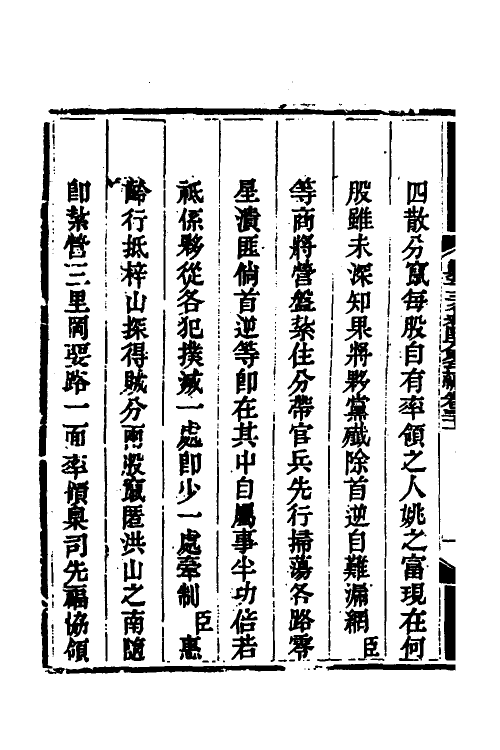 四散分竄每股自有率領之人姚之富現在何
股雖未深知果將夥黨殲除首逆自難漏網臣
等商將營盤紮住分帶官兵先行掃蕩各路零
星潰匪倘首逆等卽在其中自屬事半功倍若
祇係夥從各犯撲滅一處卽少一處牽制臣惠
齡行抵梓山探得賊分兩股竄匿洪山之南隨
卽紮營三里岡要路一面率領臬司先福協領